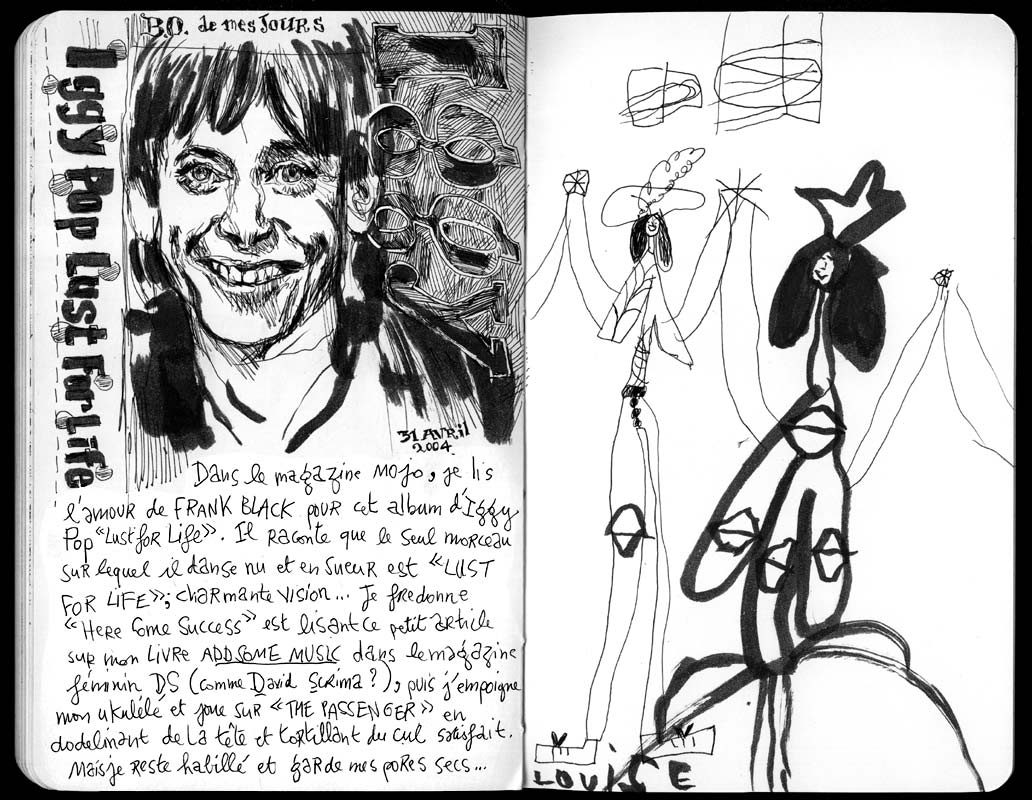 B.O. de mes JOURS
Iggy Pop Lust For Life
IGGY
31 AVRIL
2004
Dans le magazine MOJO, je lis
l'amour de FRANK BLACK pour cet album d'Iggy
Pop "Lust for Life". Il raconte que le seul morceau
sur lequel il danse nu et en sueur est "LUST
FOR LIFE"; charmante vision... Je fredonne
"Here Come Success" est lisant ce petit article
sur mon LIVRE ADD SOME MUSIC dans le magazine
féminin DS (comme David Scrima?), puis j'empoigne
mon ukulélé et joue sur "THE PASSENGER" en
dodelinant de la tête et tortillant du cul satisfait.
Mais je reste habillé et garde mes pores secs...
LOUISE